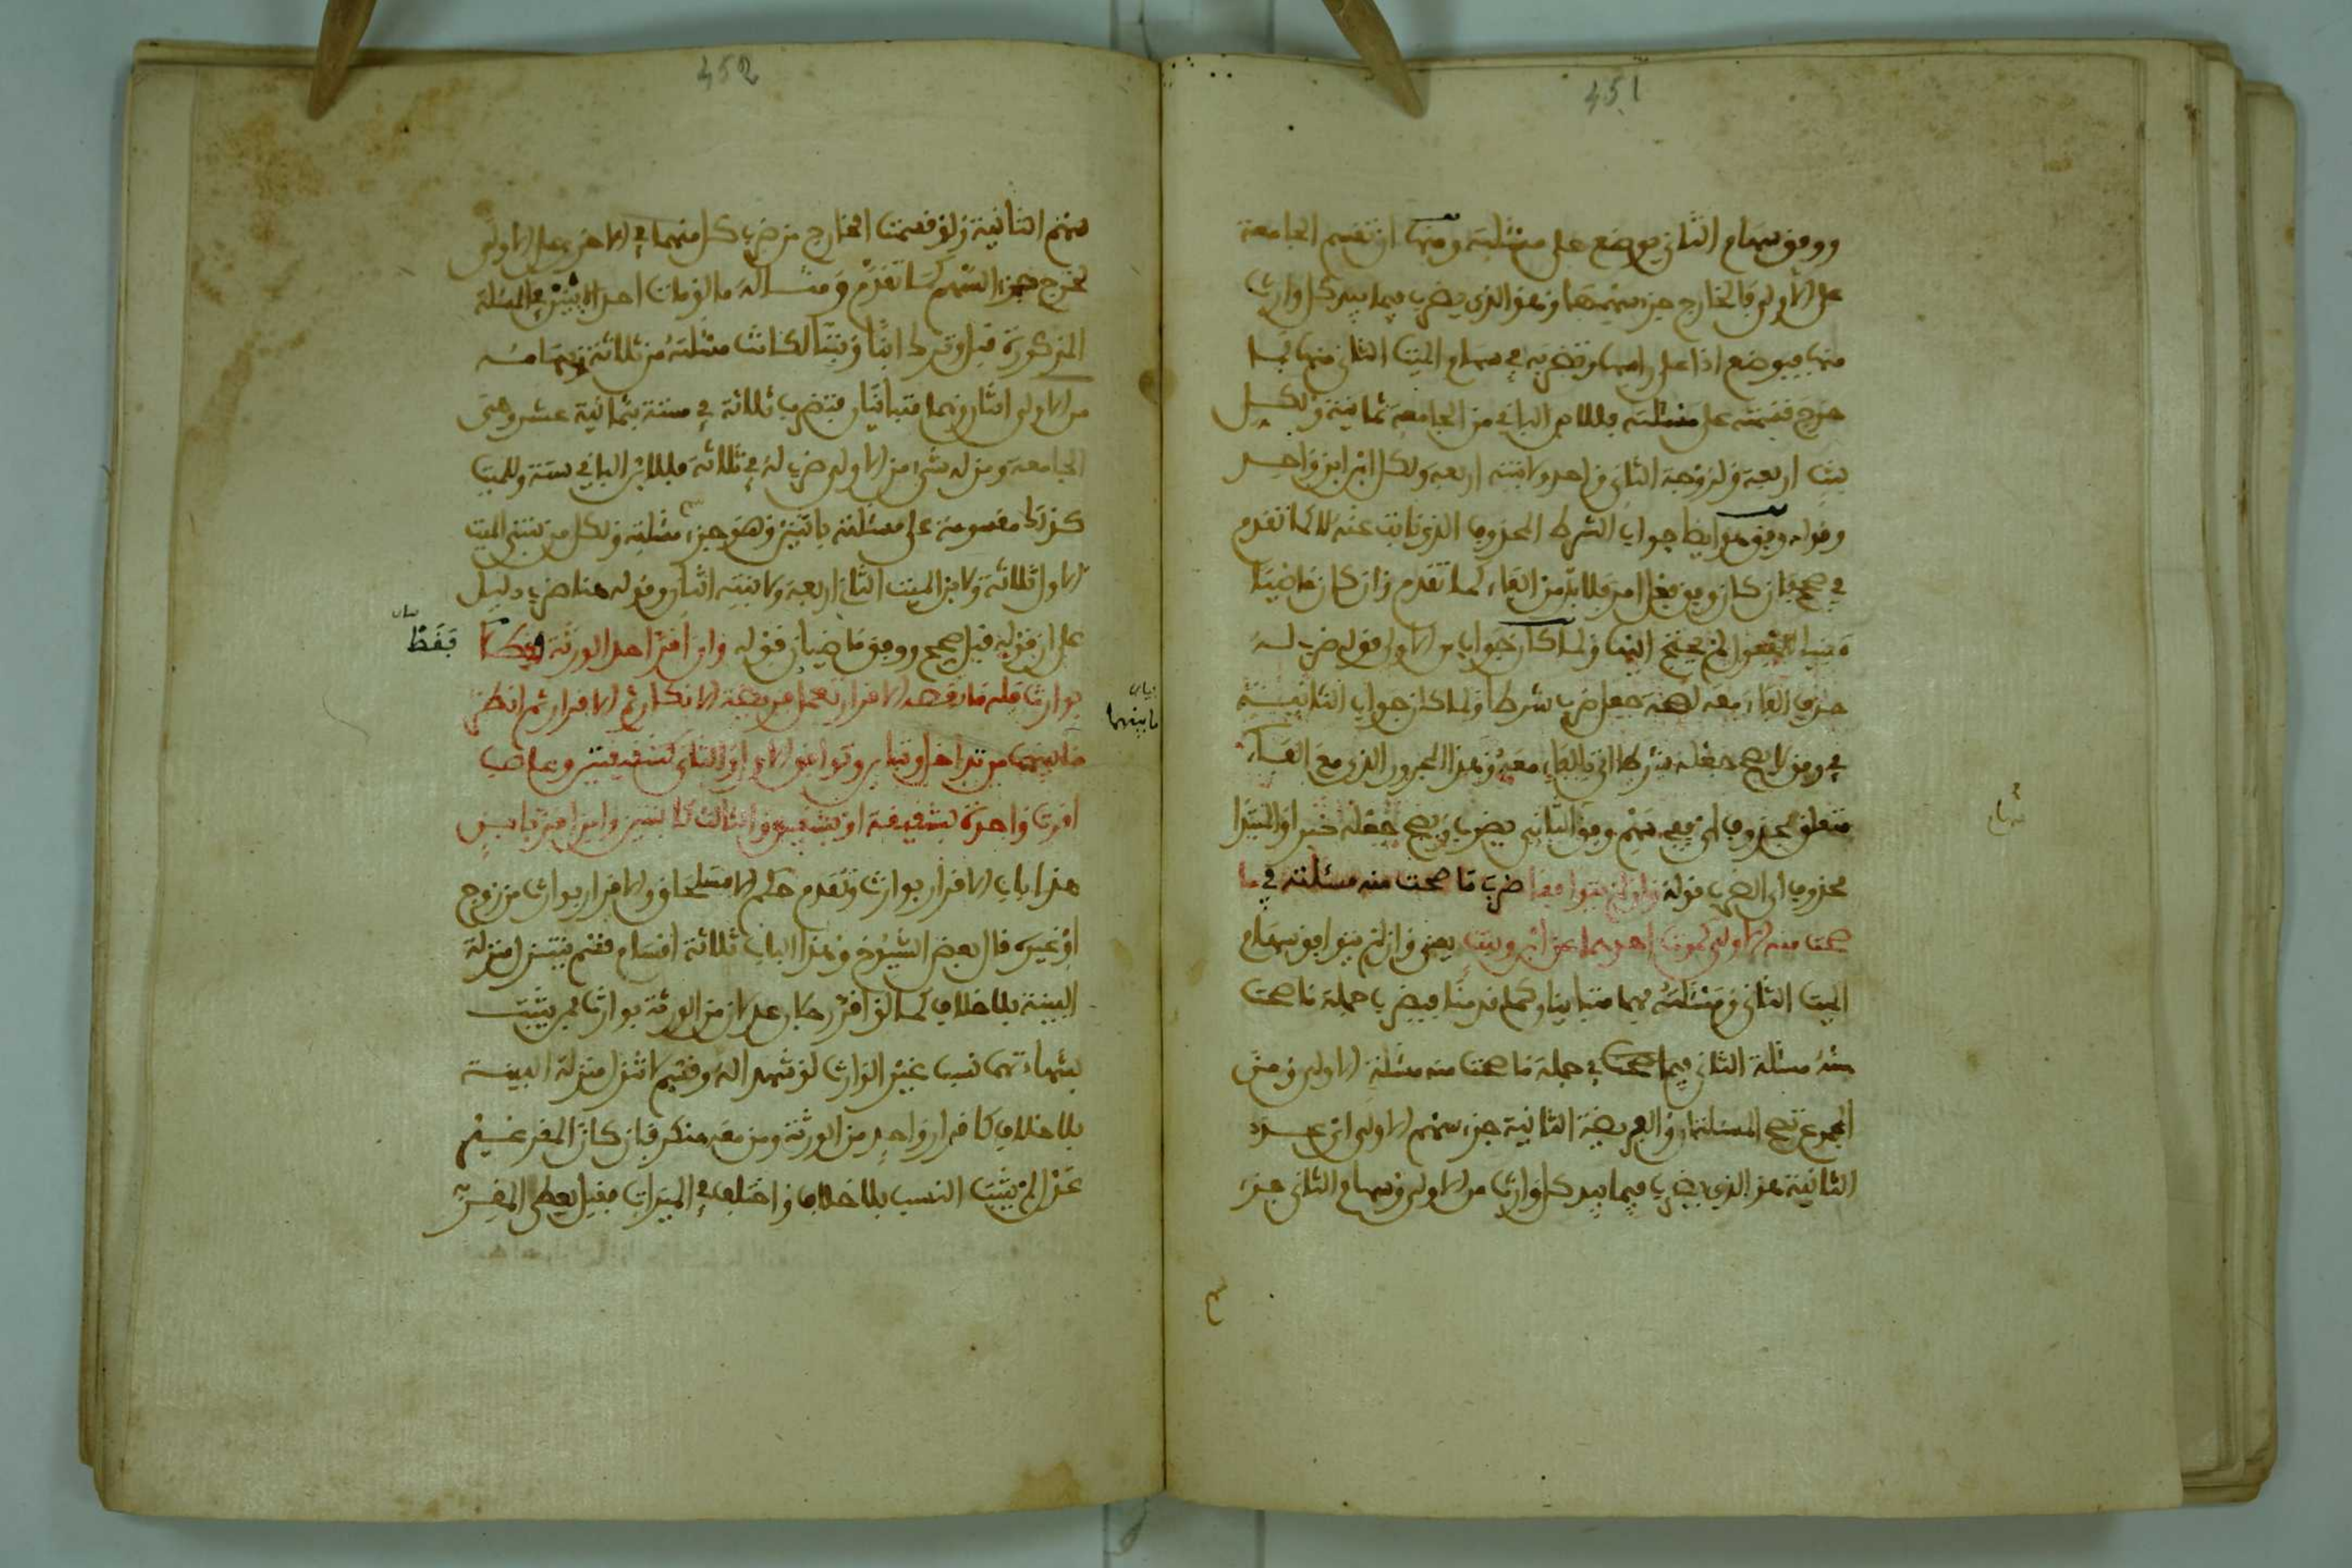 451
ووفق سهام الثاني يوضع على مسئلته ومنها ان تقسم الجامعة
على الاولى فالخارج جزء سهمها وهو الذي يضرب فيما بيد كل وارث
منها فيوضع اذا على رامها وتضربه في سهام الميت الثاني منها فما
خرج قسمته على مسئلته فللام الباقي من الجامعة ثمانية ولكل
بنت اربعة ولزوجة الثاني واحد ولابنته اربعة ولكل ابن ابن واحد
وقوله وفق هو ايضا جواب الشرط المحذوف الذي نابت عنه كما تقدم
في صح فان كان وفق فعل امر فلا بد من الفاء كما تقدم وان كان ماضيا
مبنيا للمفعول لم يحتج اليها ولما كان جواب من الاولى قوله ضرب له
حذف الفاء معه لصحة جعل ضرب شرطا ولما كان جواب الثانية
في وفق لا يصح جعله شرطا اتى بالفاء معه وهذا المجرور الذي مع الفاء
متعلق بمحذوف اي ففي سهم وفق الثاني يضرب ويصح جعله خبر المبتدا
محذوف اي الضرب قوله وان لم يتوافقا ضرب ما صحت منه مسئلته في ما
صحت منه الاولى كموت احدهما عن ابن وبنت يعني وان لم يتوافق سهام
الميت الثاني ومسئلته فهما متباينان كما قدمنا فيضرب جملة ما صحت
منه مسئلة الثاني فيما صحت في جملة ما صحت منه مسئلة الاولى ومن
المجموع تصح المسئلتان والفريضة الثانية جزء سهم الاولى اي عدد
الثانية هو الذي يضرب فيما بيد كل وارث من الاولى وسهام الثاني جزء
452
سهم الثانية ولو قسمت الخارج من ضرب كل منهما في الاخر على الاولى
لخرج جزء السهم كما تقدم ومثاله ما لو مات احد الابنين في المسئلة
المذكورة قبل وترك ابنا وبنتا لكانت مسئلته من ثلاثة وسهامه
من الاولى اثنان وهما متباينان فتضرب ثلاثة في ستة بثمانية عشر وهي
الجامعة ومن له شيء من الاولى ضرب له في ثلاثة فللابن الباقي ستة وللميت
كذلك مقسومة على مسئلته باثنين وهو جزء مسئلته ولكل من بنتي الميت
الاول ثلاثة ولابن الميت الثاني اربعة ولابنته اثنان وقوله هنا ضرب دليل
على ان قوله قبل صحح ووفق ماضيان قوله وان اقر احد الورثة فقط
بوارث فله ما نقصه الاقرار تعمل فريضة الانكار ثم الاقرار ثم انظر
ما بينهما من تداخل وتباين وتوافق الاول والثاني كشقيقتين وعاصب
اقرت واحدة بشقيقة او بشقيق والثالث كابنتين وابن اقر بابن
هذا باب الاقرار بوارث وتقدم حكم الاستلحاق والاقرار بوارث من زوج
او غيره قال بعض الشيوخ وهذا الباب ثلاثة اقسام قسم يتنزل منزلة
البينة بلا خلاف كما لو اقر رجلان عدلان من الورثة بوارث فيثبت
بشهادتهما نسب غير الوارث لو شهدا له وقسم لا تنزل منزلة البينة
بلا خلاف كاقرار واحد من الورثة ومن معه منكر فان كان المقر غير
عدل لم يثبت النسب بلا خلاف واختلف في الميراث فقيل يعطي المقر به
بيان
فقط
بيان
ما بينهما